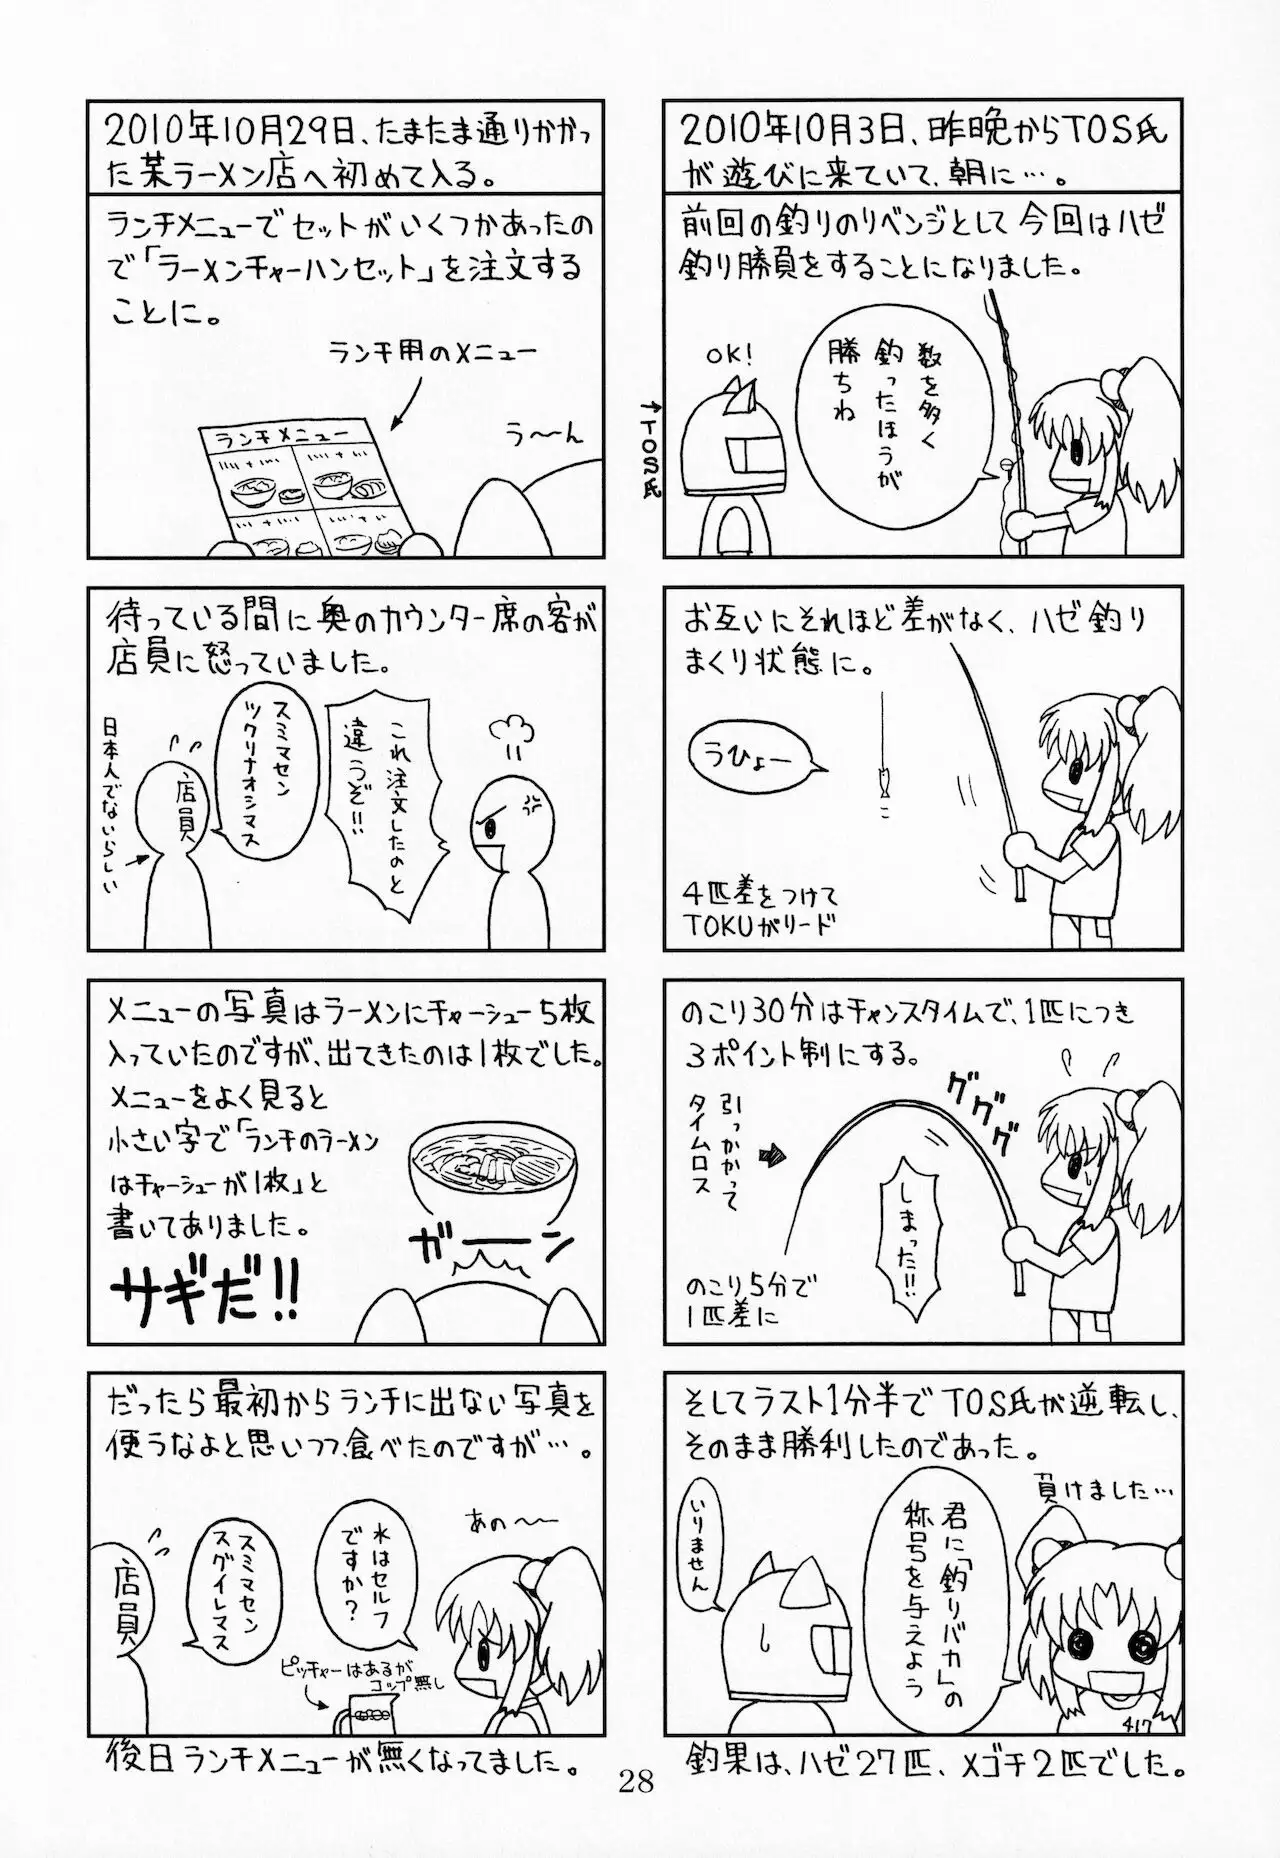 2010年10月3日、昨晩からTOS氏
が遊びに来ていて、朝に…。
前回の釣りのリベンジとして今回はハゼ
釣り勝負をすることになりました。
数を多く
釣ったほうが
勝ちね
OK!
↑TOS氏
お互いにそれほど差がなく、ハゼ釣り
まくり状態に。
うひょー
4匹差をつけて
TOKUがリード
のこり30分はチャンスタイムで、1匹につき
3ポイント制にする。
ググググ
引っかかって
タイムロス
しまった!!
のこり5分で
1匹差に
そしてラスト1分半でTOS氏が逆転し、
そのまま勝利したのであった。
負けました…
君に「釣りバカ」の
称号を与えよう
いりません
417
釣果は、ハゼ27匹、メゴチ2匹でした。
2010年10月29日、たまたま通りかかっ
た某ラーメン店へ初めて入る。
ランチメニューでセットがいくつかあったの
で「ラーメンチャーハンセット」を注文する
ことに。
ランチ用のメニュー
ランチメニュー
う〜ん
待っている間に奥のカウンター席の客が
店員に怒っていました。
これ注文したのと
違うぞ!!
スミマセン
ツクリナオシマス
店員
日本人でないらしい
メニューの写真はラーメンにチャーシュー5枚
入っていたのですが、出てきたのは1枚でした。
メニューをよく見ると
小さい字で「ランチのラーメン
はチャーシューが1枚」と
書いてありました。
ガーーン
サギだ!!
だったら最初からランチに出ない写真を
使うなよと思いつつ、食べたのですが…。
あの〜〜
水はセルフ
ですか?
スミマセン
スグイレマス
店員
ピッチャーはあるが
コップ無し
後日ランチメニューが無くなってました。
28